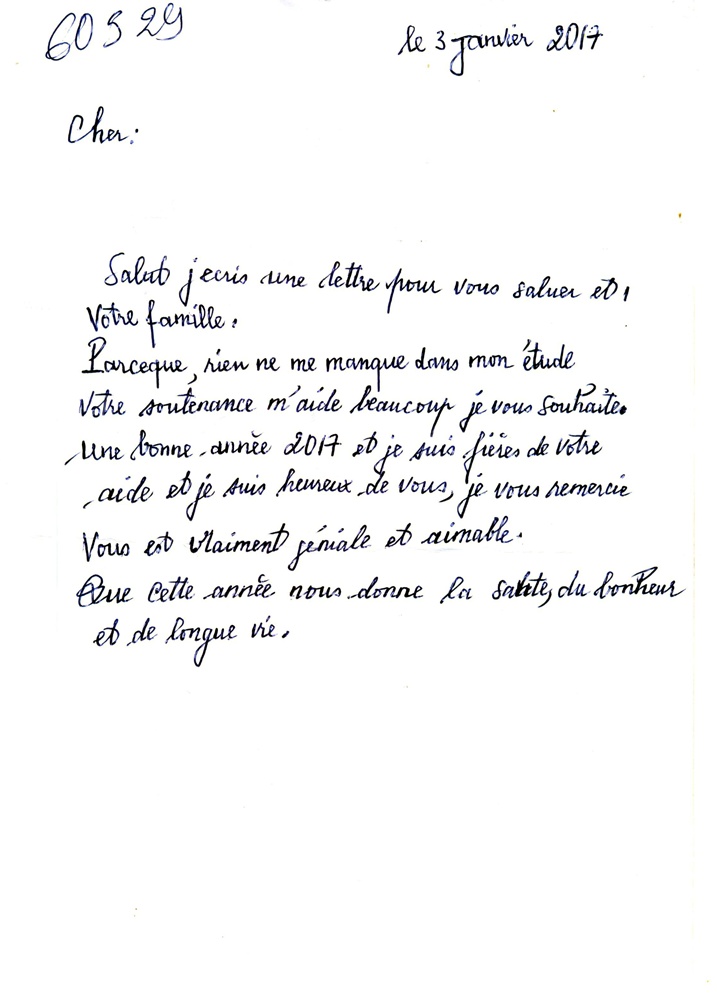 60529
le 3 janvier 2017
Cher:
Salut j'ecris une lettre pour vous saluer et,
Votre famille.
Parceque, rien ne me manque dans mon étude
Votre soutenance m'aide beaucoup je vous souhaite.
une bonne année 2017 et je suis fières de votre
aide et je suis heureux de vous, je vous remercie
Vous est vraiment géniale et aimable.
Que cette année nous donne la sante, du bonheur
et de longue vie.